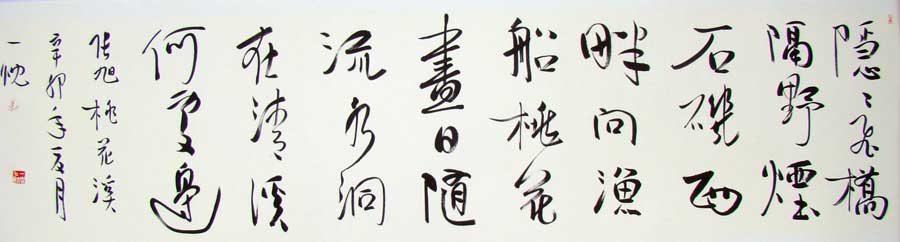 隱〻飛橋
隔野煙
石磯西
畔问漁
船桃花
盡日随
流水洞
在清溪
何處邊
張旭桃花溪
辛卯年夏月
一